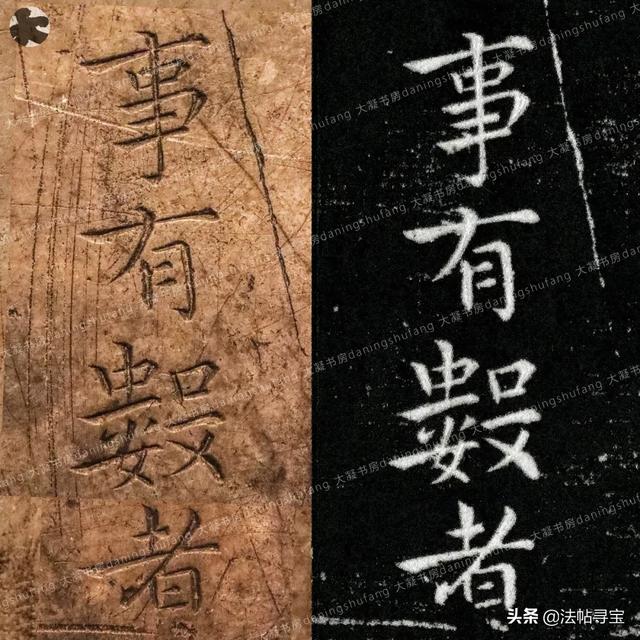 事有數者
事有數者
大凝书房daningshufang
头条 @法帖寻宝